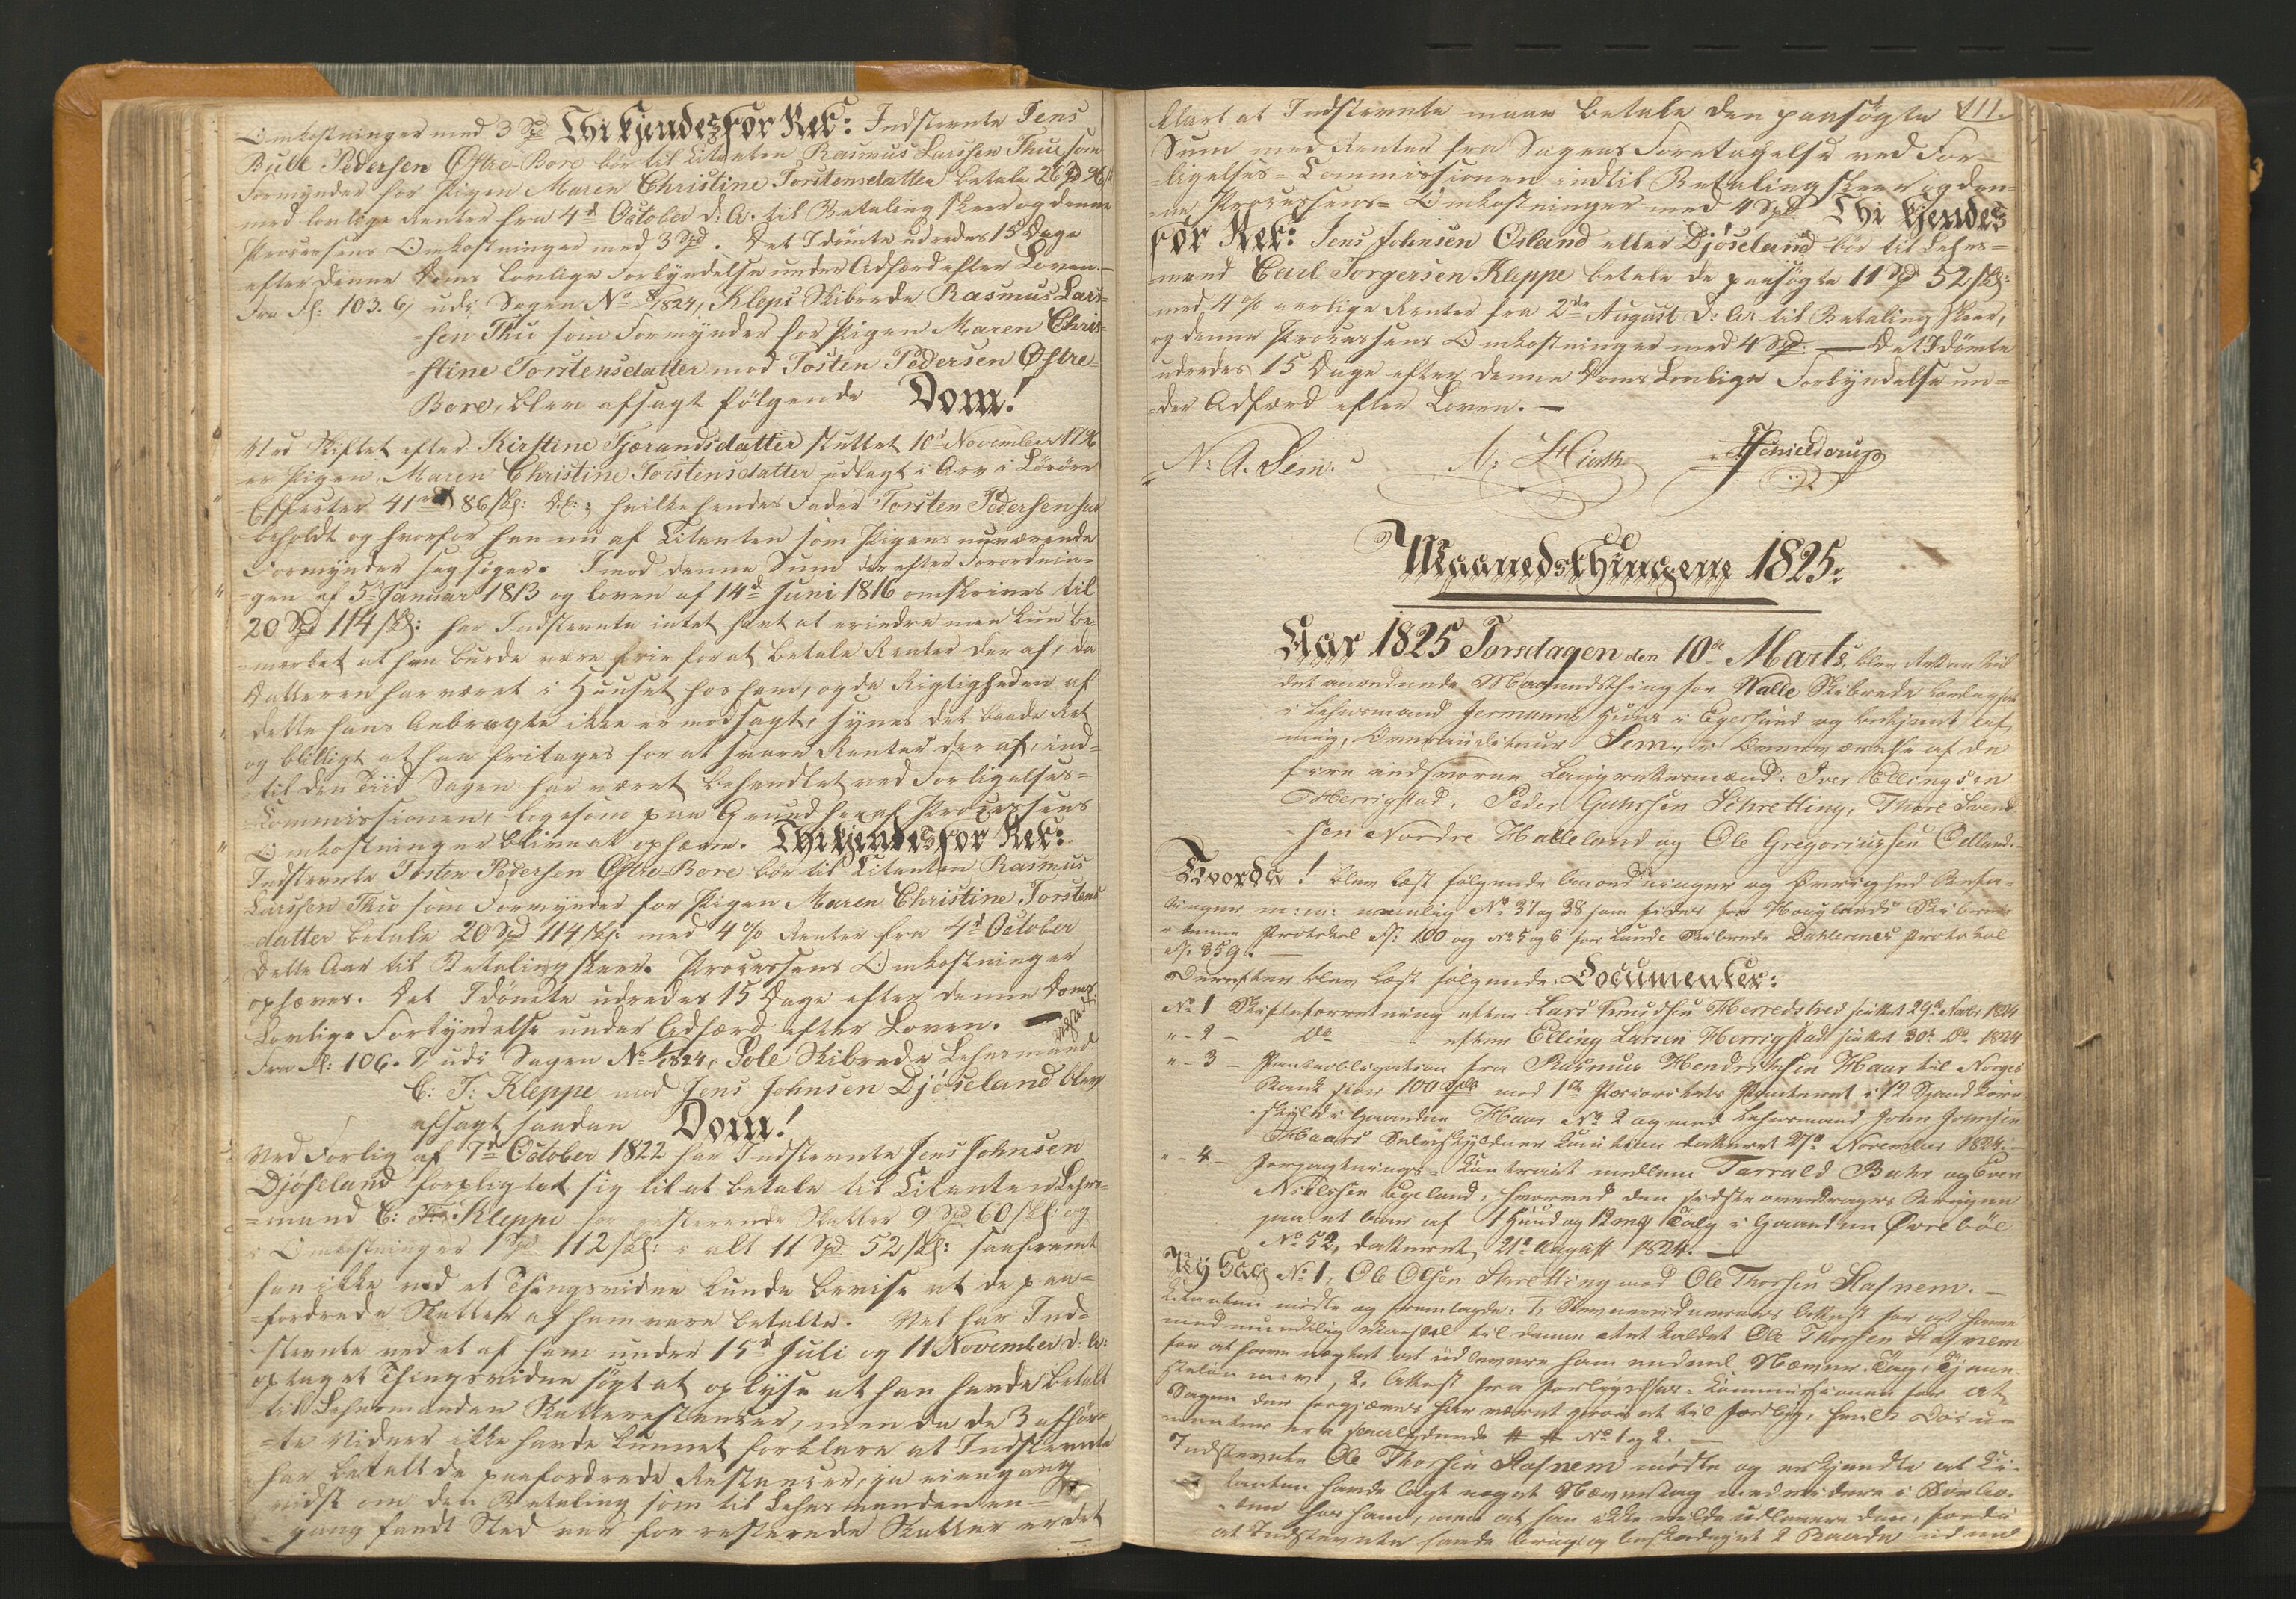 Omkostninger med 3 Spd Thi kjendes for Ret: Indstevnte Jens
Bull Pedersen Østre-Bore bör til Citanten Rasmus Larssen Thue som
Formynder for Pigen Maren Christine Torstensdatter betale 26 Spd 96 s
med lovlige Renter fra 4d October d: A. til Betaling skeer og denne
Processens Omkostninger med 3 Spd. Det Idömte udredes 15 Dage
efter denne Doms lovlige Forkyndelse under Adfærd efter Loven. —
Fra Fl: 103. 6, udi Sagen No /1824, Kleps Skibrede Rasmus Lars-
-sen Thu som Formynder for Pigen Maren Chri-
-stine Torstensdatter mod Tosten Pedersen Østre-
Bore, blev afsagt følgende Dom!
Ved Skiftet efter Kirstine Tjærandsdatter sluttet 10d November 1796
er Pigen Maren Christine Torstensdatter udlagt i Arv i Lösöre
Effecter 41 rd 86 skl: D.C.; hvilke hendes Fader Torsten Pedersen har
beholdt og hvorfor han nu af Citanten som Pigens nuværende
Formynder sagsöges. Imod denne Sum der efter Forordnin-
-gen af 5 Januar 1813 og Loven af 14d Juni 1816 omskrives til
20 Spd 114 skl: har Indstevnte intet havt at erindre men kun be-
-mærket at han burde være frie for at betale Renter deraf, da
Datteren har været i Huuset hos ham, og da Rigtigheden af
dette hans Anbragte ikke er modsagt, synes det baade Ret
og billigt at han fritages for at svare Renter deraf, ind-
-til den Tiid Sagen har været behandlet ved Forligelses-
-Commissionen, ligesom paa Grund heraf Processens
Omkostninger bliver at ophæve. Thi kjendes for Ret:
Indstevnte Tosten Pedersen Østre-Bore bör til Citanten Rasmus
Larssen Thu som Formynder for Pigen Maren Christine Torstens
-datter betale 20 Spd 114 skl: med 4 % Renter fra 4d October
dette Aar til Betaling skeer. Processens Omkostninger
ophæves. Det Idömte udredes 15 Dage efter denne Doms
Lovlige Forkyndelse under Adfærd efter Loven. —
Fra Fl: 106. 8, udi Sagen No /1824, Sole Skibrede Lehnsmand
C: T: Kleppe mod Jens Johnsen Djöseland blev
afsagt saadan Dom!
Ved Forlig af 7d October 1822 har Indstevnte Jens Johnsen
Djöseland forpligtet sig til at betale til Citanten Lehns-
-mand C: T: Kleppe for resterende Skatter 9 Spd 60 skl: og
i Omkostninger 1 Spd 112 skl: i alt 11 Spd 52 skl: saafremt
han ikke ved et Thingsvidne kunde bevise at de paa-
-fordrede Skatter af ham vare betalte. Vel har Ind-
stevnte ved et af ham under 15d Juli og 11 November d: A:
optaget Thingsvidne sögt at oplyse at han havde betalt
til Lehnsmanden Skatterestancer, men da de 3 afhör-
-te Vidner ikke havde kunnet forklare at Indstevnte
har betalt de paafordrede Restancer, ja eiengang
vidst om den Betaling som til Lehnsmanden en-
gang fandt Sted var for resterede Skatter er det
111.
klart at Indstevnte maae betale den paasögte
Sum med Renter fra Sagens Foretagelse ved For-
-ligelses-Commissionen indtil Betaling skeer og den-
-ne Processens-Omkostninger med 4 Spd. Thi kjendes
for Ret: Jens Johnsen Osland eller Djöseland bör til Lehns-
-mand Carl Torgersen Kleppe betale de paasögte 11 Spd 52 skl:
med 4 % aarlige Renter fra 2de August d: A: til Betaling skeer,
og denne Processens Omkostninger med 4 Spd: — Det Idömte
udredes 15 Dage efter denne Doms Lovlige Forkyndelse un-
-der Adfærd efter Loven. —
N: A. Sem. A: Hiorth Schielderup
Maanedsthingene 1825.
Aar 1825 Torsdagen den 10de Marts, blev Retten til
det anordnede Maanedsthing for Nalle Skibrede
i Lehnsmand Jermanns Huus i Egersund og betjent af
mig, Overauditeur Sem, i Overværelse af de
fire eedsvorne Laugrettesmænd: Iver Ellingsen
Herrigstad, Peder Guhrsen Schretting, Thore Svend-
-sen Nordre Halleland og Ole Gregoriussen Odland. —
Hvorda! blev læst følgende Anordninger og Övrighed Befa-
linger m: m: nemlig No 37 og 38 som findes for Hoylands Skibrede
i denne Protokol Fl: 100 og No 5 og 6 for Lunde Skibrede Dahlerenes Protokol
Fl: 359. —
Derefter blev læst følgende Documenter:
No 1 Skifteforretning efter Lars Knudsen Herredstved sluttet 29d Novbr 1824
" - 2 - Do - efter Elling Larsen Herrigstad sluttet 30d Do 1824
" - 3 - Panteobligation fra Rasmus Hendrichsen Haar til Norges
Bank stor 100 Spd mod 1te Prioritets Panteret i 12 Spand Korn
skyld i Gaarden Haar No 2 og med Lehnsmand John Johnsen
Haars Selvskyldner Caution dateret 27d November 1824. —
" - 4 - Forpagtnings-Contract mellem Tarrald Buhr og Even
Nielssen Egeland, hvorved den sidste overdrages Brugen
paa et Aar af 1 Huud og 12 mrk Talg i Gaarden Övrebö
No 52, dateret 21d August 1824. —
Ny Sag No 1, Ole Olsen Skretting mod Ole Thorsen Hafnem. —
Citanten mödte og fremlagde: 1, Stevnevidnernes Attest for at have
med mundtlig Varsel til denne Ret kaldet Ole Thorsen Hafnem
for at have nægtet at udlevere ham
m: v:, 2, Attest fra Forligelses-Commissionen for at
Sagen der forgjæves har været prøvet til Forlig, hvilke Docu-
menter ere saalydende # # No 1 og 2. —
Indstevnte Ole Thorsen Hafnem mödte og erkjendte at Ci-
tanten havde lagt noget
hos ham, men at han ikke vilde udlevere den, fordi
at Indstevnte havde brugt og beskadiget 2 Baade